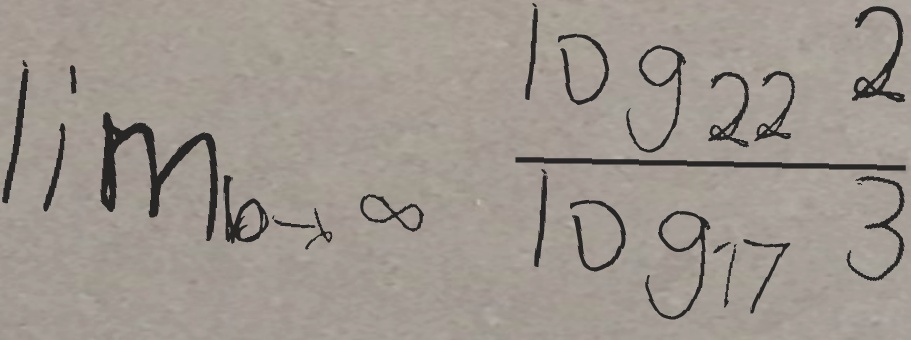 lim_{b→∞} \frac{log_{22} 2}{log_{17} 3}